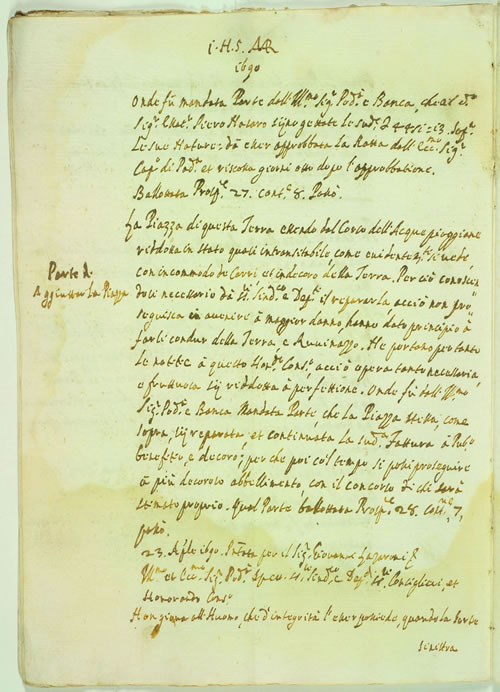 i. H. S. MR
1690
Onde fù mandata Parte dall'Ill.mo Sig.r Pod.à e Banca, che al d.o
Sig.r Piero siano gettate le sud.e
le sue Nature: dà esser approbbata la dall'Ecc.mo Sig.r
Cap.o di Pad.a et riscossa giorni otto dopo l'approbbatione.
Ballottata Prosp.e 27. Cont.e 8. Passò.
La Piazza di questa Terra essendo dal Corso dell'Acque piovane
riddotta in stato quasi intransitabile come evidentem.te si vede
con incommodo de Carri et indecoro della Terra. Perciò conoscen
doli necessario dà Sind.ci e Dep.ti il repararla, acciò non pro,
seguisca in avenire à maggior danno, hanno dato principio à
farli condur della Terra, e Ruvinazzo. Ne portano pertanto
le notitie à questo Hon.do Cons.o acciò opera tanto necessaria
e fruttuosa sij riddotta à perfettione. Onde fù dall'Ill.mo
Sig.r Pod.à e Banca Mandata Parte, che la Piazza stessa, come
sopra, sij reparata, et continuata la sud.a Fattura à Pub.o
benefitio, e decoro; per che poi co'l tempo si possi proseguire
à più decoroso abbellimento, con il concorso di chi serà
stimato proprio. Qual Parte ballottata Prosp.e 28. Cont.e 7,
passò.
Parte p.
Aggiustar la Piazza
23. Aprile 1690. per il Sig.r Giovanni
Ill.mo et Ecc.mo Sig.r Pod.à Sind.ci e Dep.ti Consiglieri, et
Honorando Cons.o
Non giova all'Huomo, che d'integrità l'esser possiede, quando la Sorte
sinistra